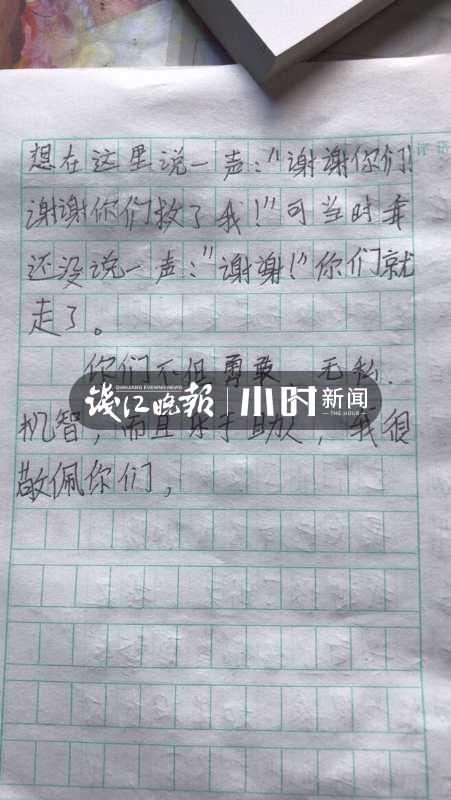 想在这里说一声："谢谢你们!
谢谢你们救了我!"可当时我
还没说一声："谢谢!"你们就
走了。
你们不但勇敢 无私、
QIANJIANG EVENING NEWS
钱江晚报 小时新闻
THE HOUR
机智，而且乐于助人，我很
敬佩你们，